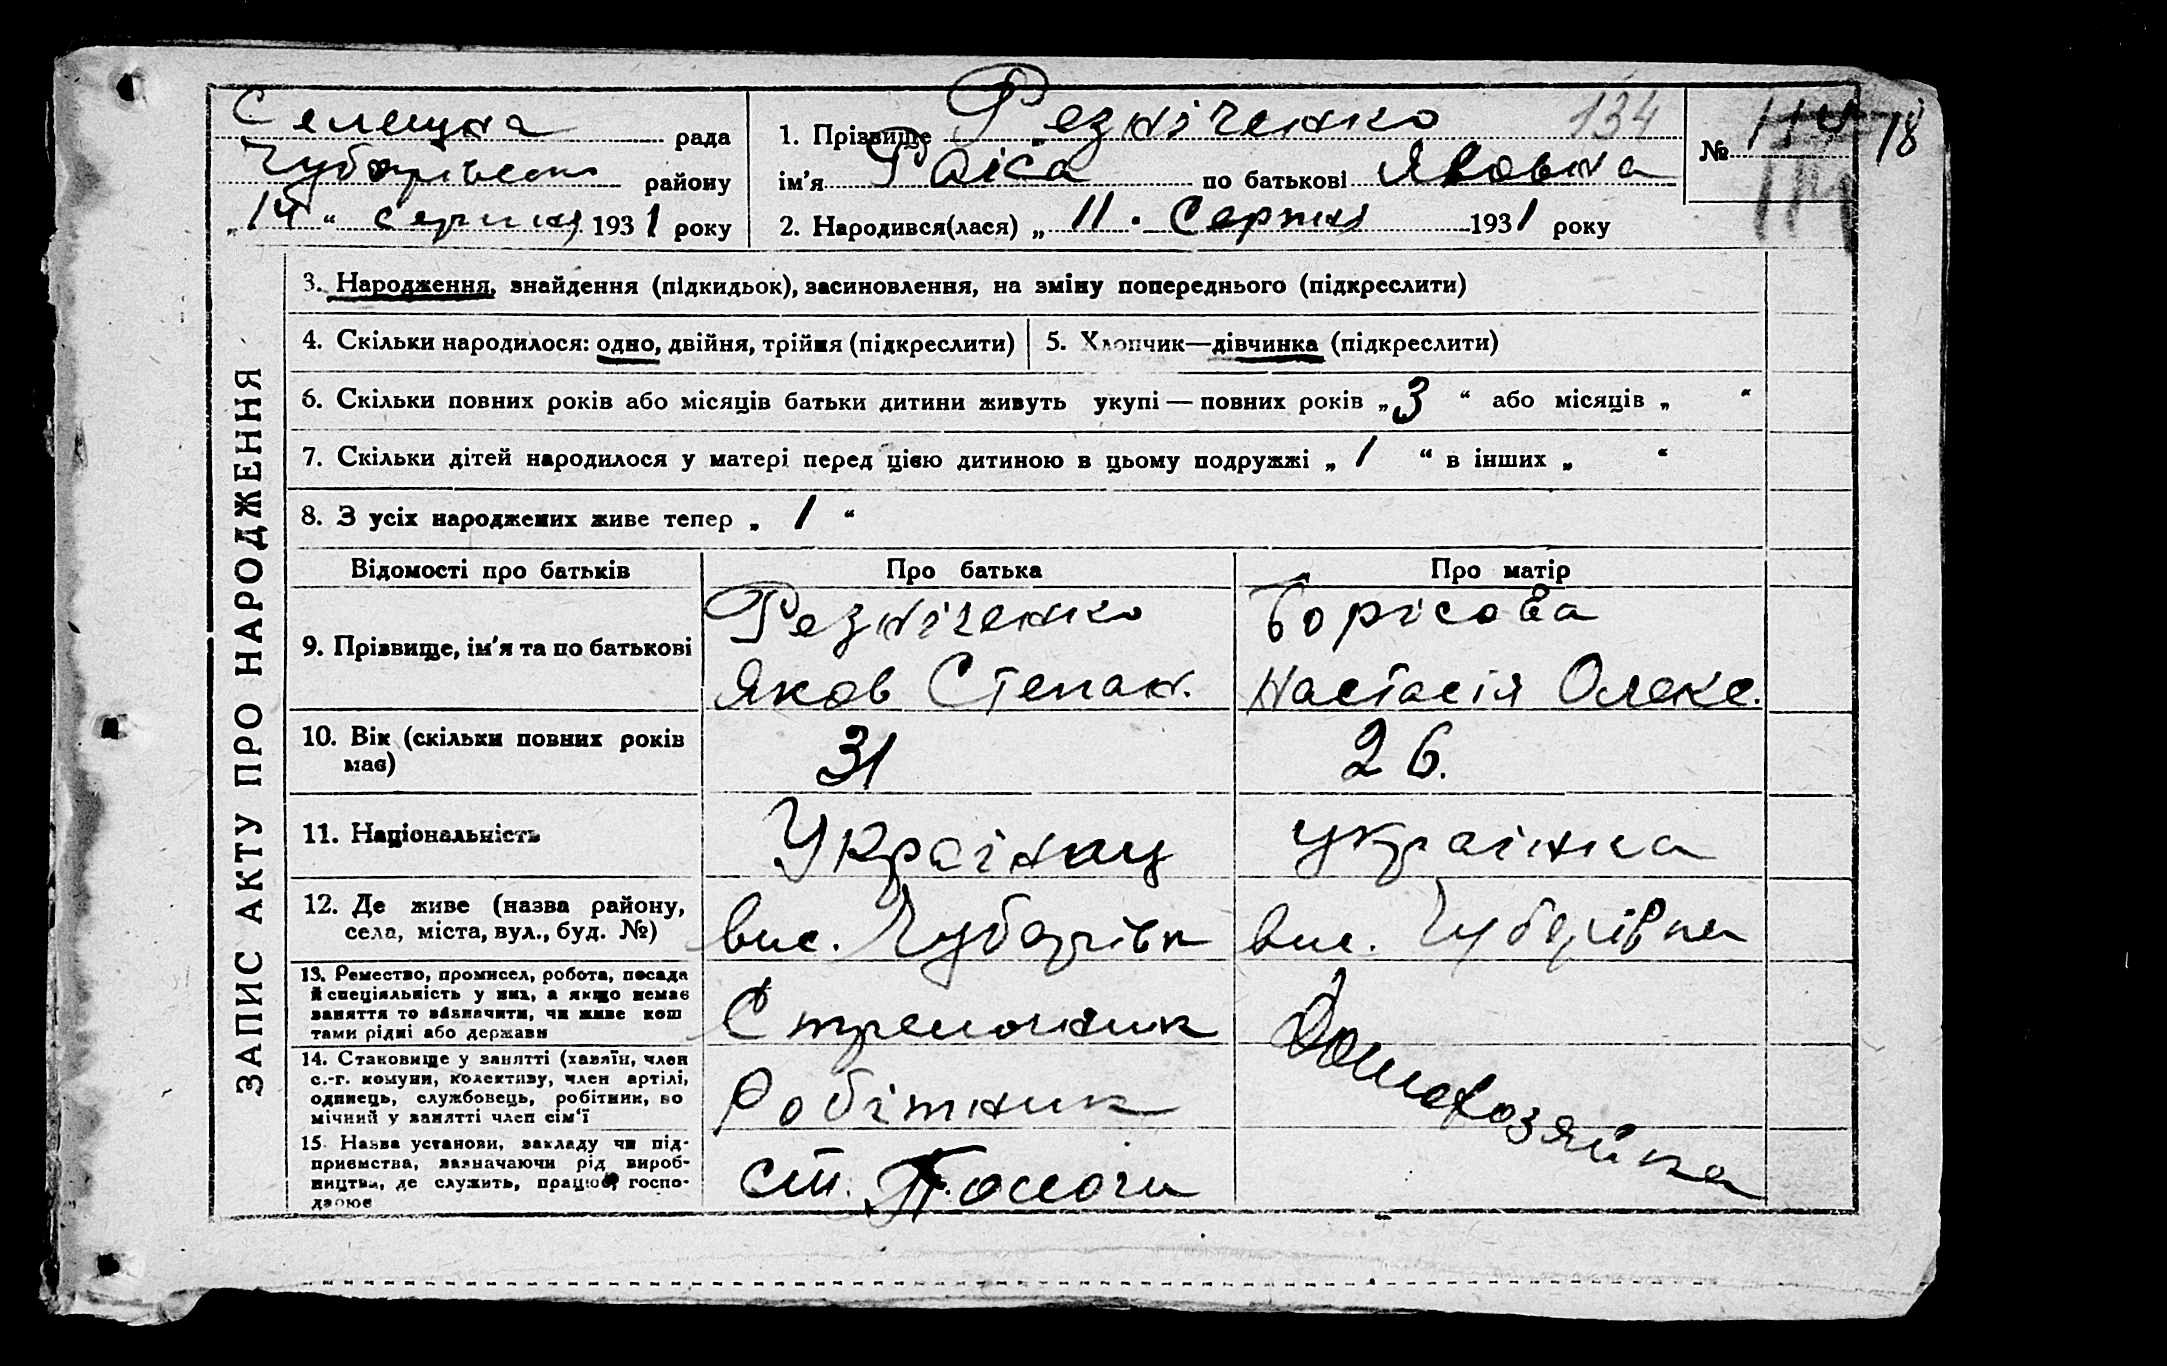 Селещна рада
Чубарівськ району
„14“ серпня 1931 року
1. Прізвище Резніченко 134
ім'я Раіса по батькові Яковна
2. Народився(лася) „11. Серпня 1931 року
№ 114 18
114
ЗАПИС АКТУ ПРО НАРОДЖЕННЯ
3. Народження, знайдення (підкидьок), засиновлення, на зміну попереднього (підкреслити)
4. Скільки народилося: одно, двійня, трійня (підкреслити)
5. Хлопчик—дівчинка (підкреслити)
6. Скільки повних років або місяців батьки дитини живуть укупі — повних років „3“ або місяців „ “
7. Скільки дітей народилося у матері перед цією дитиною в цьому подружжі „ 1 “ в інших „ “
8. З усіх народжених живе тепер „ 1 “
Відомості про батьків Про батька Про матір
9. Прізвище, ім'я та по батькові
Резніченко
Яков Степан.
Борісова
Настасія Олекс.
10. Вік (скільки повних років
має)
31
26.
11. Національність
Украінец
украінка
12. Де живе (назва району,
села, міста, вул., буд. №)
вис. Чубарівк
вис. Чубарівка
13. Ремество, промисел, робота, посада
й спеціяльність у них, а якщо немає
заняття то вазначити, чи живе кош
тами рідні або держави
Стрелочник
Домохозяйка
14. Становище у занятті (хазяїн, член
с.-г. комуни, колективу, член артілі,
одинець, службовець, робітник, по
мічний у занятті член сім'ї
Робітник
15. Назва установи, закладу чи під-
приємства, зазначаючи рід вироб-
ництва, де служить, працює, госпо-
дарює
ст. Пологи